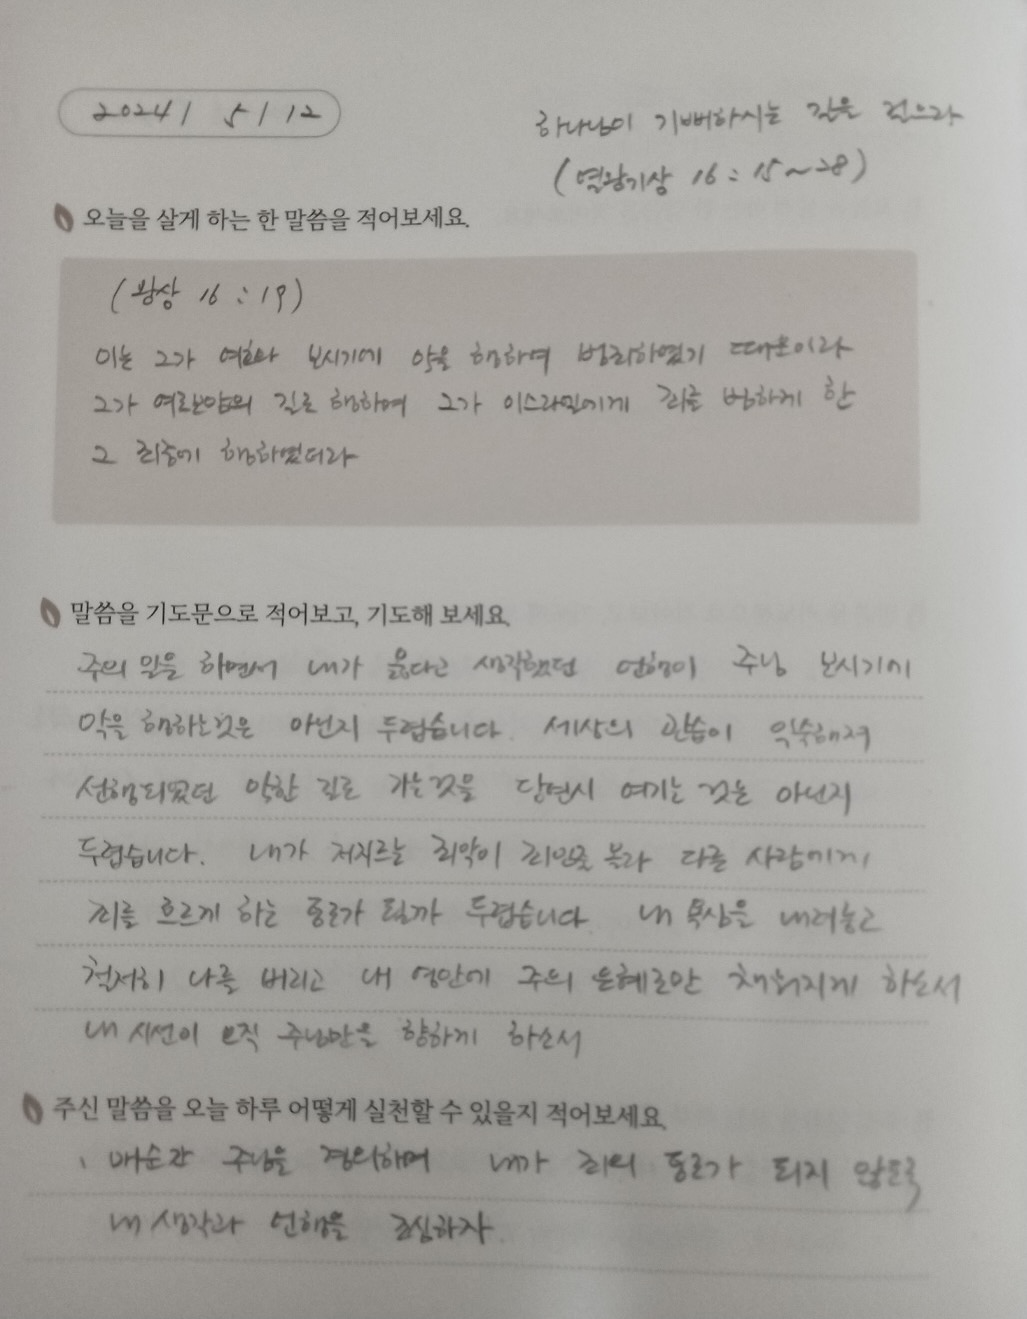 2024 / 5 / 12
하나님이 기뻐하시는 길을 걸으라
(열왕기상 16 : 15~28)
오늘을 살게 하는 한 말씀을 적어보세요.
(왕상 16 : 19)
이는 그가 여호와 보시기에 악을 행하여 범죄하였기 때문이라
그가 여로보암의 길로 행하며 그가 이스라엘에게 죄를 범하게 한
그 죄중에 행하였더라
말씀을 기도문으로 적어보고, 기도해 보세요.
주의 일을 하면서 내가 옳다고 생각했던 언행이 주님 보시기에
악을 행하는것은 아닌지 두렵습니다. 세상의 관습이 익숙해져
선행되었던 악한 길로 가는것을 당연시 여기는 것은 아닌지
두렵습니다. 내가 저지르는 죄악이 죄인줄 몰라 다른 사람에게
죄를 흐르게 하는 통로가 될까 두렵습니다. 내 욕심을 내려놓고
철저히 나를 버리고 내 영안에 주의 은혜로만 채워지게 하소서
내 시선이 오직 주님만을 향하게 하소서
주신 말씀을 오늘 하루 어떻게 실천할 수 있을지 적어보세요.
1 매순간 주님을 경외하며 내가 죄의 통로가 되지 않도록
내 생각과 언행을 조심하자.